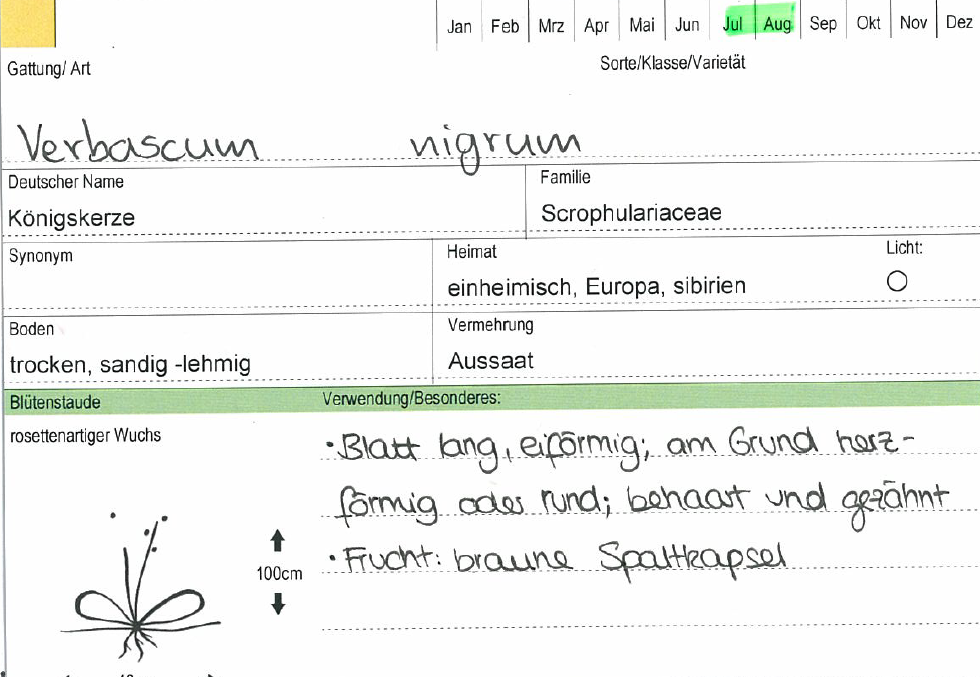 Jan Feb Mrz Apr Mai Jun Jul Aug Sep Okt Nov Dez
Gattung/ Art Sorte/Klasse/Varietät
Verbascum nigrum
Deutscher Name Familie
Königskerze Scrophulariaceae
Synonym Heimat Licht:
einheimisch, Europa, sibirien
Boden Vermehrung
trocken, sandig -lehmig Aussaat
Blütenstaude Verwendung/Besonderes:
rosettenartiger Wuchs
• Blatt lang, eiförmig; am Grund herz-
förmig oder rund; behaart und gezähnt
• Frucht: braune Spaltkapsel
100cm